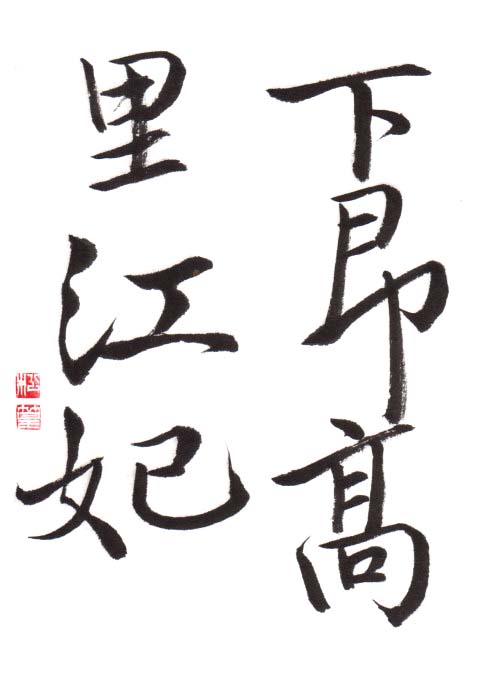 下昂髙
里江妃